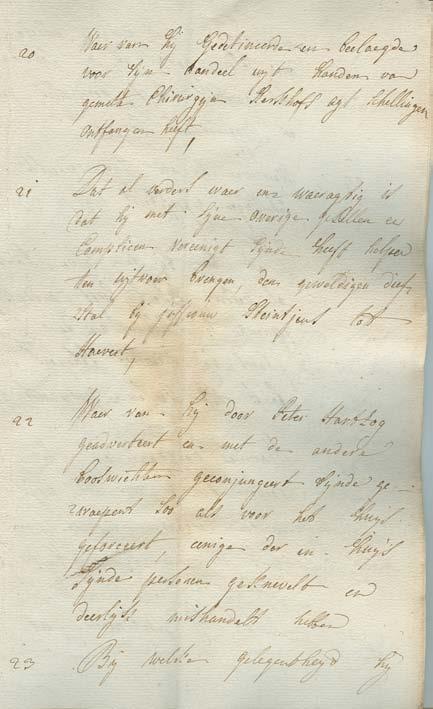 20 Waer van hij Gedetineerde en beclaegde
voor sijn aandeel uijt handen van
gemelte Chirurgijn Kerckhoffs agt schellingen
ontfangen heeft,
21 Dat al verders waer en waeragtig is
dat hij met sijne overige gesellen en
Complicen vereenigt sijnde heeft helpen
ten uijtvoer brengen, den geweldigen dief-
stal bij joffrouw Steintjens tot
Haevert,
22 Waer van hij door Peter Hartzog
geadverteert en met de andere
booswichten geconjungeert sijnde ge-
waepent soo als voor het huijs
geforceert, eenige der in huijs
sijnde persoonen geknevelt en
deerlijk mishandelt hebben
23 Bij welke gelegentheijd hij